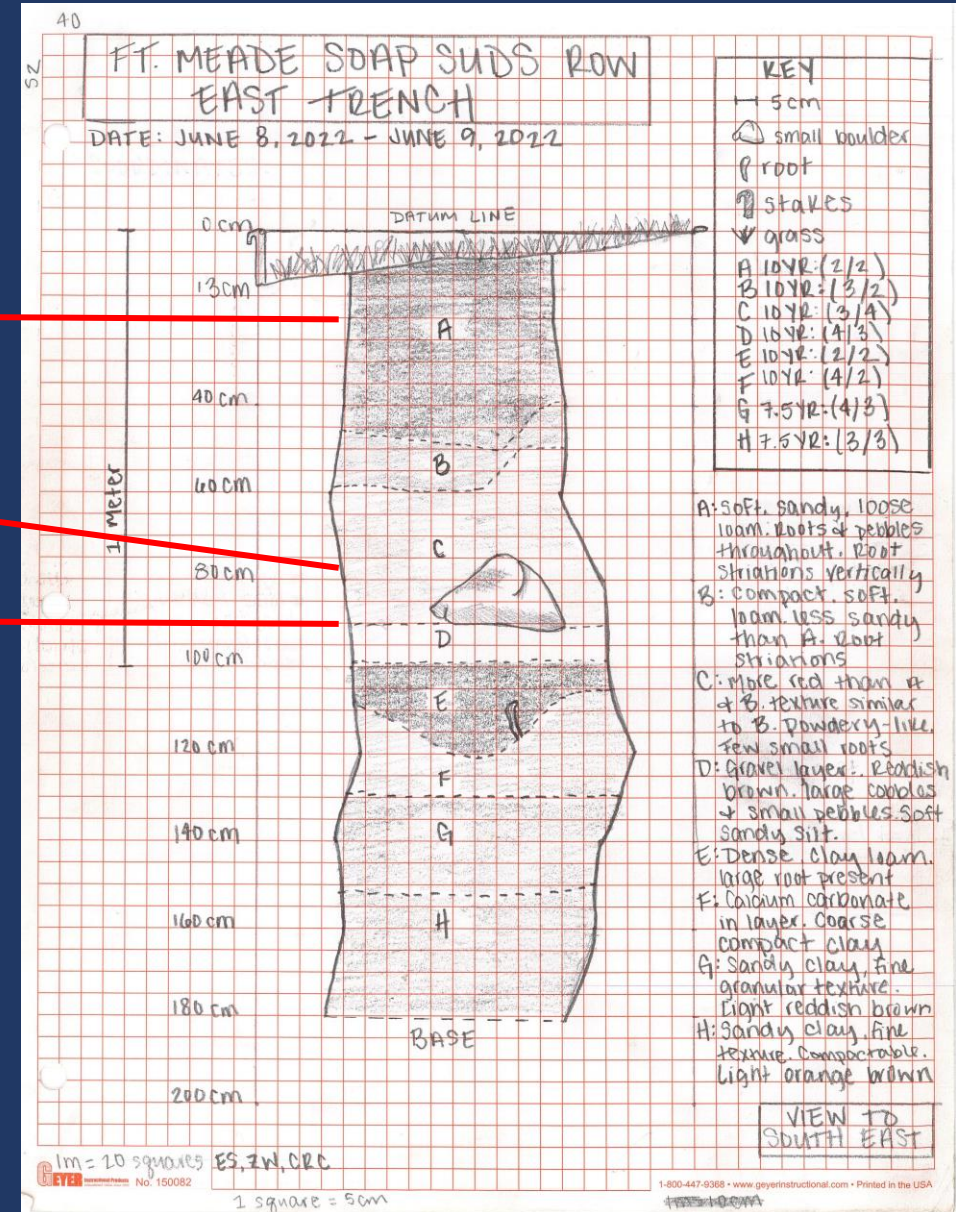 40
52
FT. MEADE SOAP SUDS ROW
EAST TRENCH
DATE: JUNE 8, 2022 - JUNE 9, 2022
KEY
5cm
small boulder
root
stakes
grass
A 10YR:(2/2)
B 10YR:(3/2)
C 10YR:(3/4)
D 10YR:(4/3)
E 10YR:(2/2)
F 10YR:(4/2)
G 7.5YR:(4/3)
H 7.5YR:(3/3)
DATUM LINE
0cm
13cm
A
40cm
B
60cm
1 Meter
C
80cm
D
100cm
E
120cm
F
140cm
G
160cm
H
180cm
BASE
200cm
A: Soft, sandy, loose
loam. Roots & pebbles
throughout. Root
striations vertically
B: Compact. soft.
loam. less sandy
than A. Root
striations
C: More red than A
& B. texture similar
to B. Powdery-like.
Few small roots
D: Gravel layer. Reddish
brown. large cobbles
& small pebbles. Soft
sandy silt.
E: Dense clay loam.
large root present
F: Calcium carbonate
in layer. Coarse
compact clay
G: Sandy clay, fine
granular texture.
Light reddish brown
H: Sandy clay, fine
texture. Compactable.
Light orange brown
VIEW TO
SOUTH EAST
1m = 20 squares ES, ZW, CRC
GEYER Instructional Products No. 150082
1-800-447-9368 • www.geyerinstructional.com • Printed in the USA
1 square = 5cm